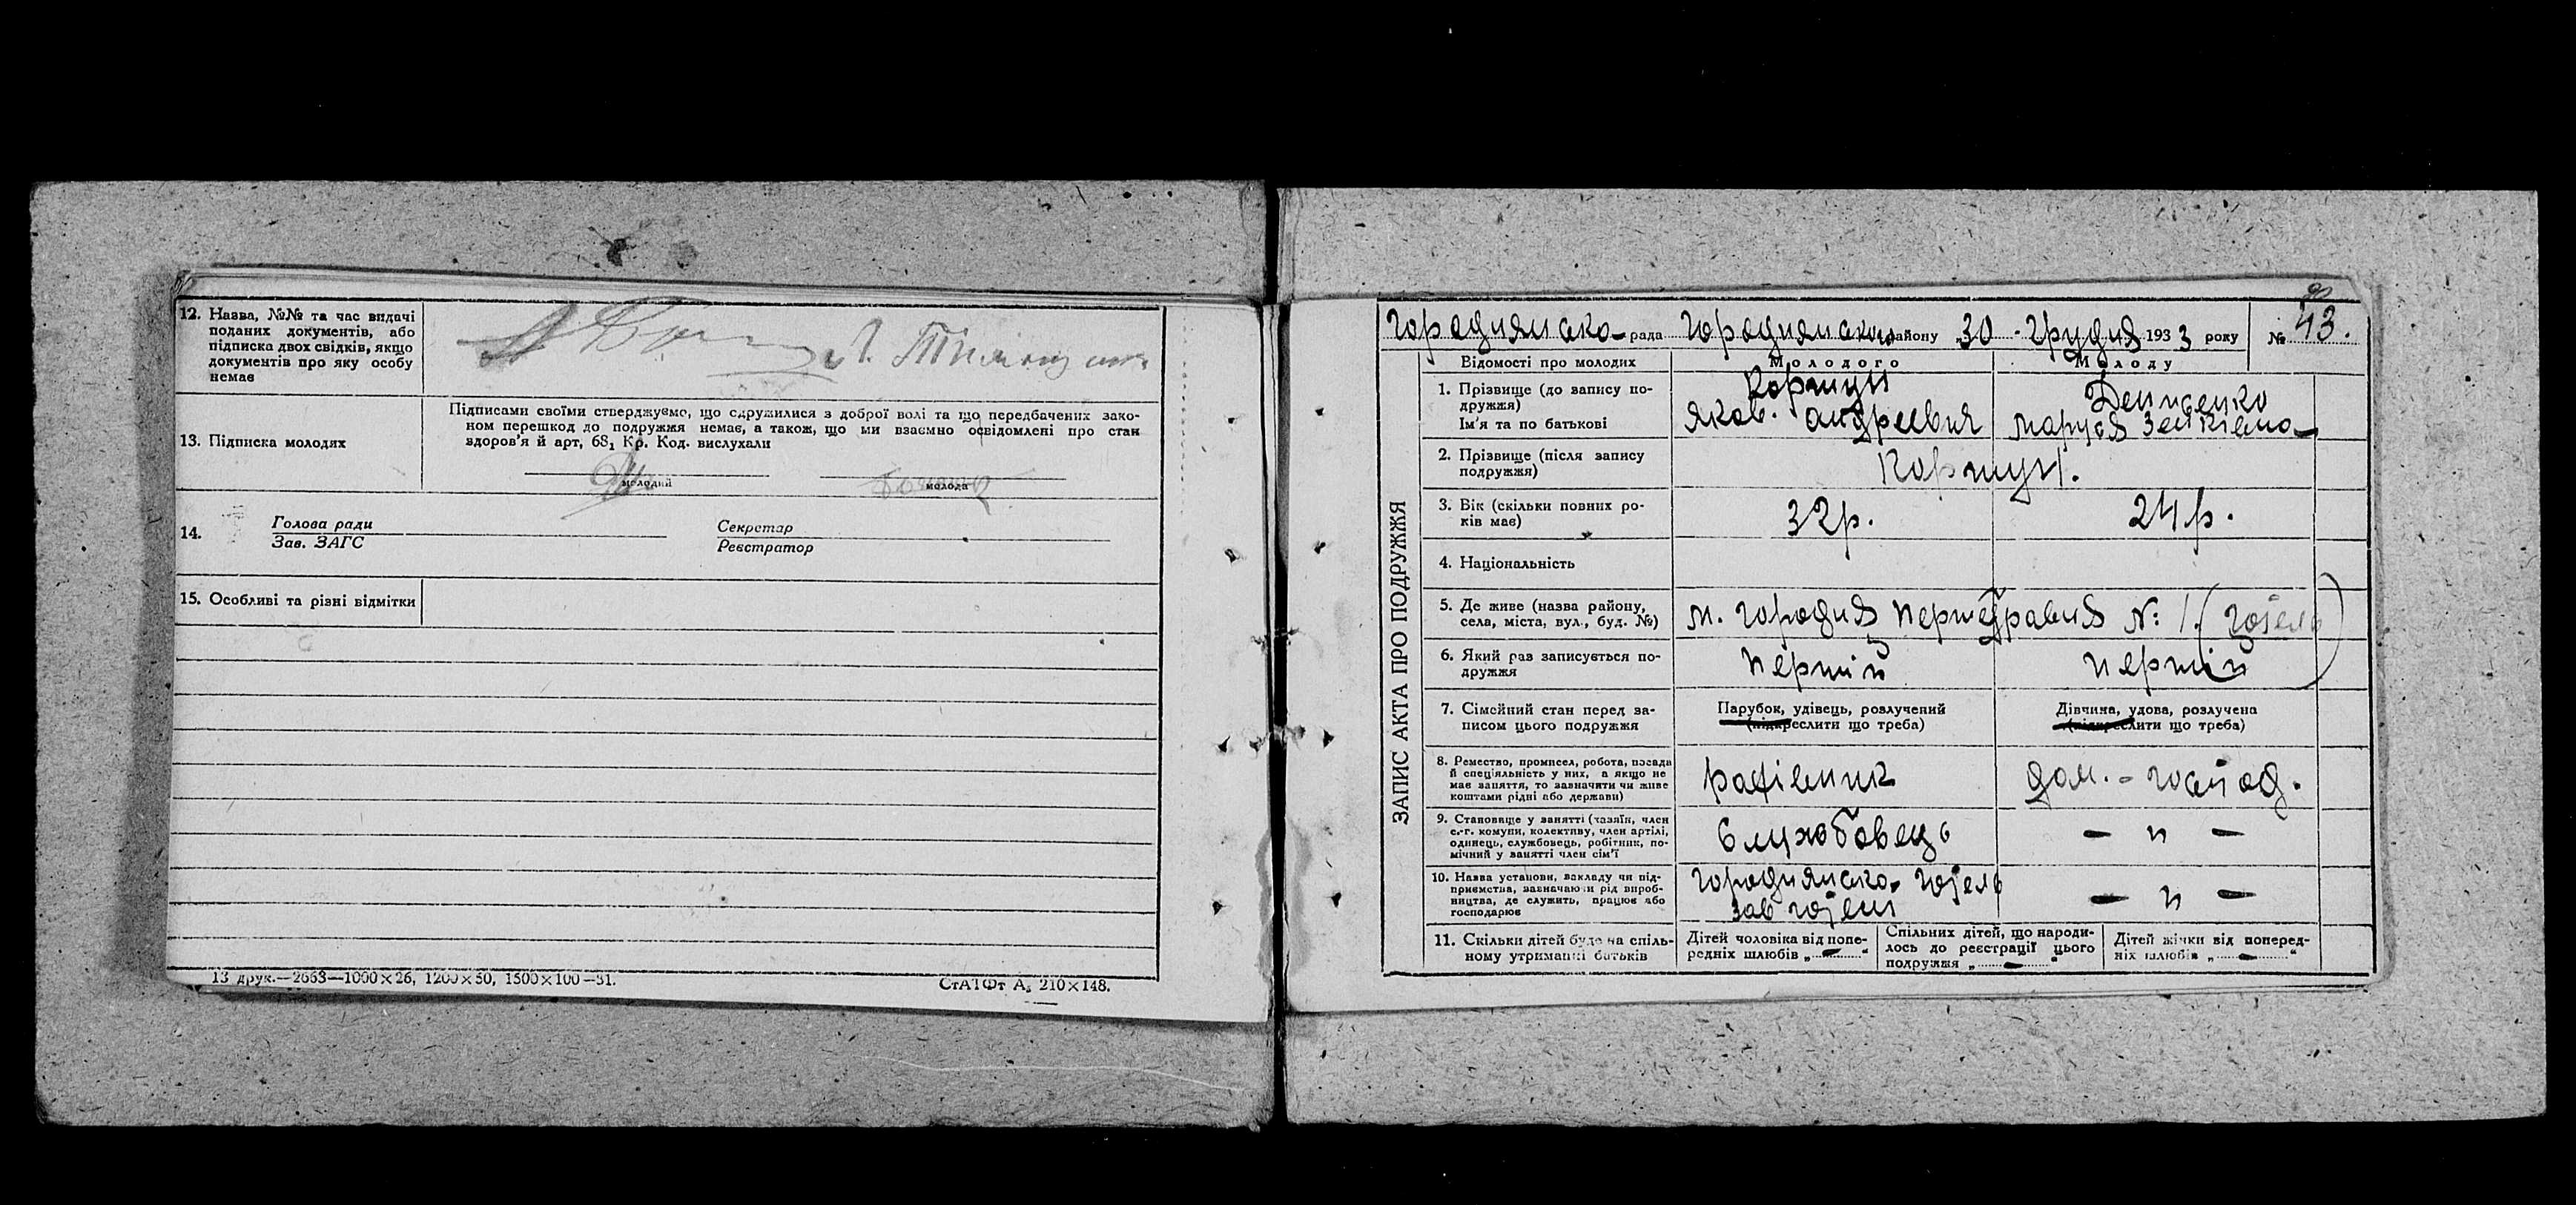 12. Назва, №№ та час видачі
поданих документів, або
підписка двох свідків, якщо
документів про яку особу
немає
13. Підписка молодях
Підписами своїми стверджуємо, що сдружилися з доброї волі та що передбачених зако-
ном перешкод до подружжя немає, а також, що ми взаємно освідомлені про стан
здоров'я й арт, 68₁ Кр. Код. вислухали
молодий
молода
14.
Голова ради
Зав. ЗАГС
Секретар
Реєстратор
15. Особливі та різні відмітки
13 друк.—2663—1000×26, 1200×50, 1500×100—31.
СтАТФт А₅ 210×148.
ЗАПИС АКТА ПРО ПОДРУЖЖЯ
Городнянско рада Городнянского району „30 Грудня 1933 року № 43.
Відомості про молодих
Молодого
Молоду
1. Прізвище (до запису по-
дружжя)
Ім'я та по батькові
Коршун
Яков. Андреевич
Денисенко
Маруся
2. Прізвище (після запису
подружжя)
Коршун.
3. Вік (скільки повних ро-
ків має)
32р.
24р.
4. Національність
5. Де живе (назва району,
села, міста, вул., буд. №)
м. Городня Першетравня № 1. (готель)
6. Який раз записується по-
дружжя
Першій
Першій
7. Сімейний стан перед за-
писом цього подружжя
Парубок, удівець, розлучений
(підкреслити що треба)
Дівчина, удова, розлучена
(підкреслити що треба)
8. Ремество, промисел, робота, посада
й спеціяльність у них, а якщо не
має заняття, то зазначити чи живе
коштами рідні або держави)
дом. - господ.
9. Становище у занятті (хазяїн, член
с.-г. комуни, колективу, член артілі,
одинець, службовець, робітник, по-
мічний у занятті член сім'ї
Службовець
— „ —
10. Назва установи, закладу чи під-
приємства, зазначаючи рід вироб-
ництва, де служить, працює або
господарює
Городнянско. готель
зав готелі
— „ —
11. Скільки дітей буде на спіль-
ному утриманні батьків
Дітей чоловіка від попе-
редніх шлюбів „ — “
Спільних дітей, що народи-
лось до реєстрації цього
подружжя „ — “
Дітей жінки від поперед-
ніх шлюбів „ — “